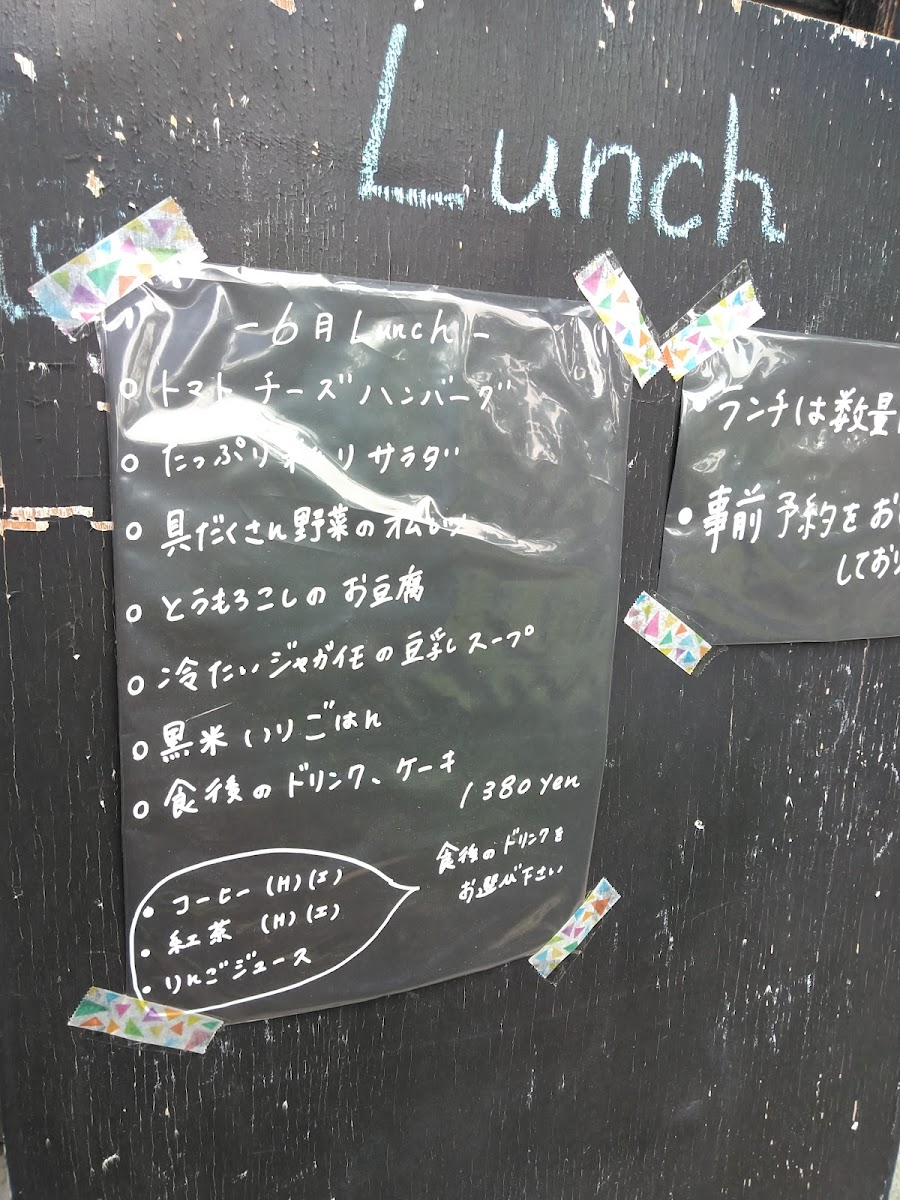 Lunch
-6月Lunch-
○ トマトチーズハンバーグ
○ たっぷり サラダ
○ 具だくさん野菜のオムレツ
○ とうもろこしのお豆腐
○ 冷たいジャガイモの豆乳スープ
○ 黒米いりごはん
○ 食後のドリンク、ケーキ
1380yen
食後のドリンクを
お選び下さい
・コーヒー (H)(I)
・紅茶 (H)(I)
・りんごジュース
・ランチは数量
・事前予約をお
しており